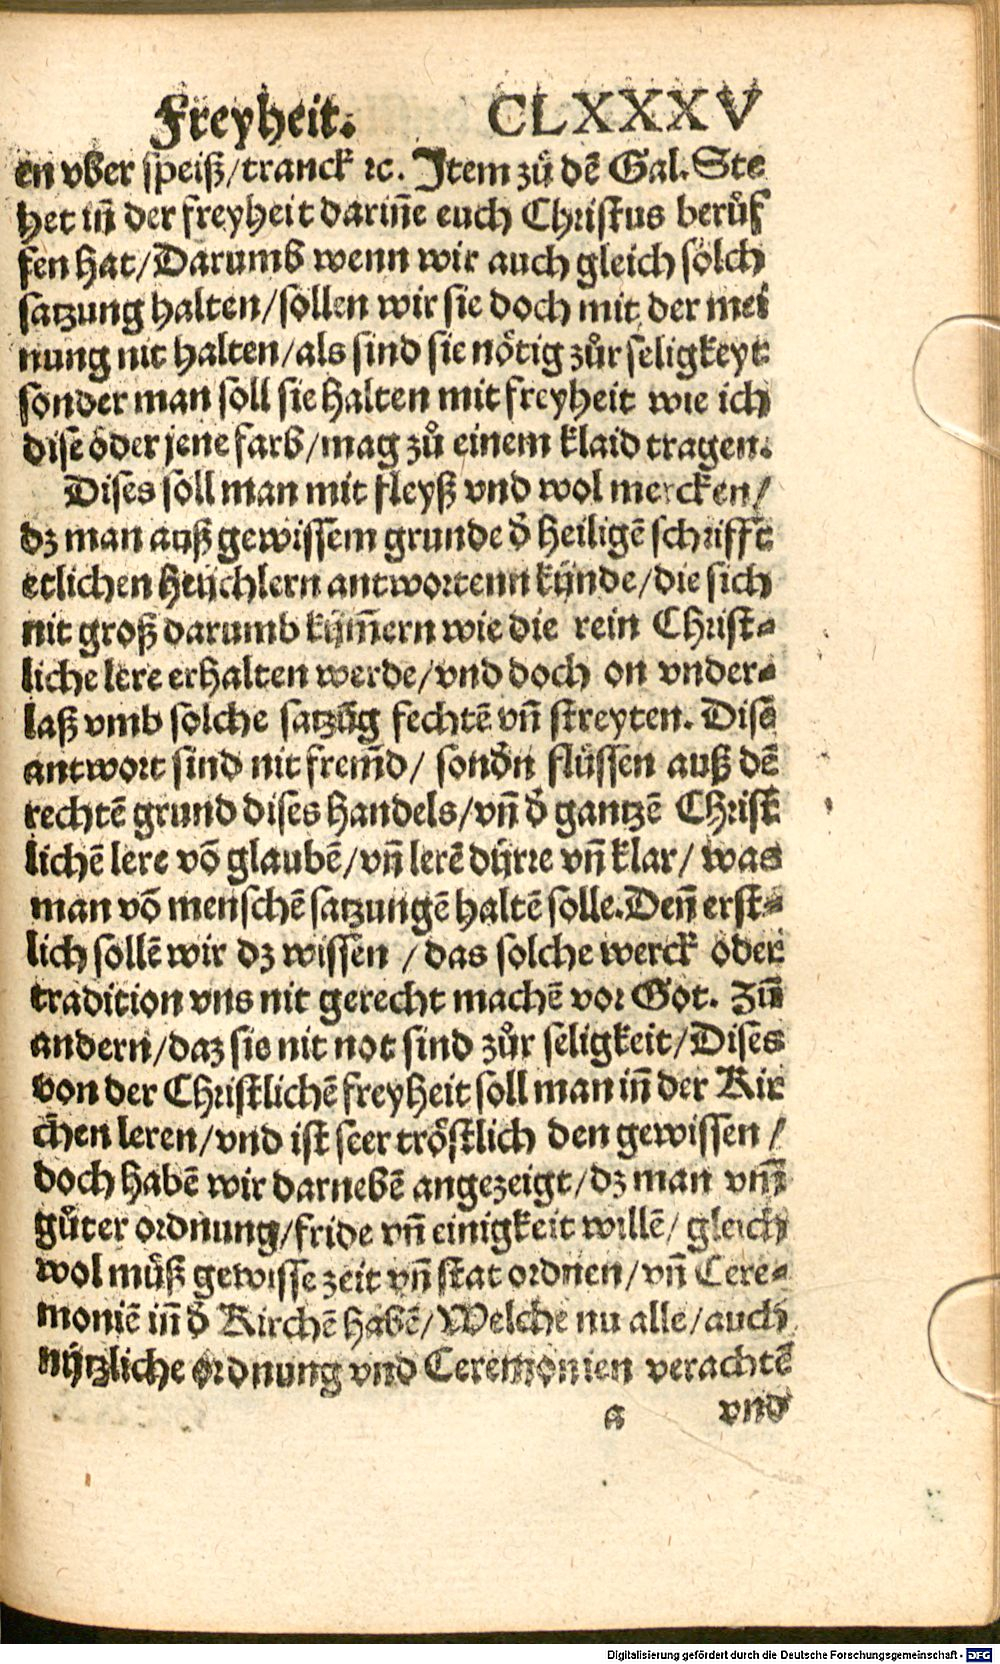 Freyheit. CLXXXV
en vber speiß/tranck ꝛc. Item zů dē Gal. Ste
het in̄ der freyheit darin̄e euch Christus berůf
fen hat/Darumb wenn wir auch gleich sölch
satzung halten/sollen wir sie doch mit der mei
nung nit halten/als sind sie nötig zůr seligkeyt
sonder man soll sie halten mit freyheit wie ich
dise oder jene farb/mag zů einem klaid tragen.
Dises soll man mit fleyß vnd wol mercken/
dz man auß gewissem grunde d̄ heiligē schrifft
etlichen heüchlern antwortenn kÿnde/die sich
nit groß darumb kÿm̄ern wie die rein Christ-
liche lere erhalten werde/vnd doch on vnder-
laß vmb solche satzūg fechtē vn̄ streyten. Dise
antwort sind nit frem̄d/ sond̄n flüssen auß dē
rechtē grund dises handels/vn̄ d̄ gantzē Christ
lichē lere vō glaubē/vn̄ lerē dÿrre vn̄ klar/ was
man vō menschē satzungē haltē solle. Den̄ erst-
lich sollē wir dz wissen /das solche werck oder
tradition vns nit gerecht machē vor Got. Zum̄
andern/daz sie nit not sind zůr seligkeit/Dises
von der Christlichē freyheit soll man in̄ der Kir
chen leren/vnd ist seer tröstlich den gewissen /
doch habē wir darnebē angezeigt/dz man vm̄
gůter ordnung/fride vn̄ einigkeit willē/ gleich
wol můß gewisse zeit vn̄ stat ordnen/vn̄ Cere-
moniē in̄ d̄ Kirchē habē/Welche nu alle/auch
nÿtzliche ordnung vnd Ceremonien verachtē
a vnd
Digitalisierung gefördert durch die Deutsche Forschungsgemeinschaft - DFG